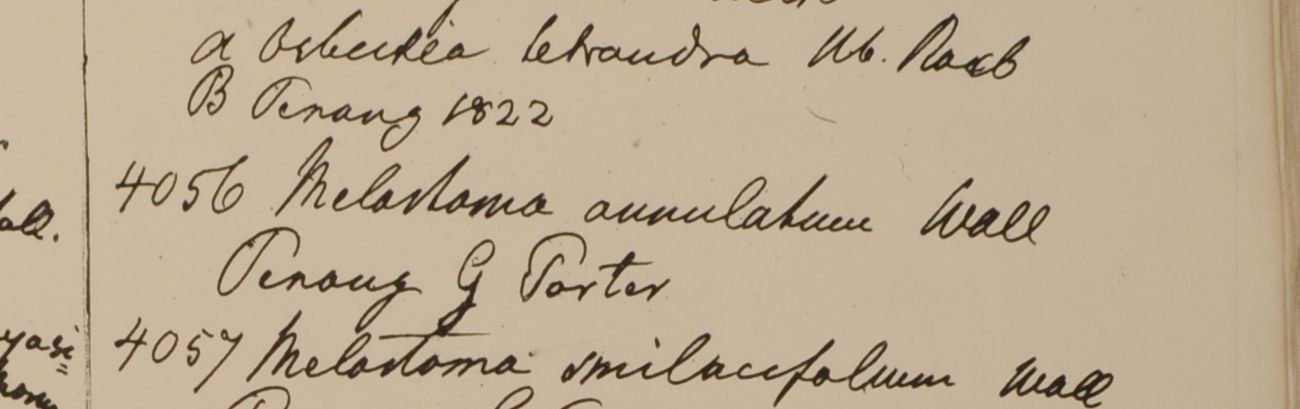 a Osbeckia tetrandra Hb. Roxb
B Penang 1822
all.
4056 Melastoma annulatum Wall
Penang G Porter
4057 Melastoma smilacifolium Wall